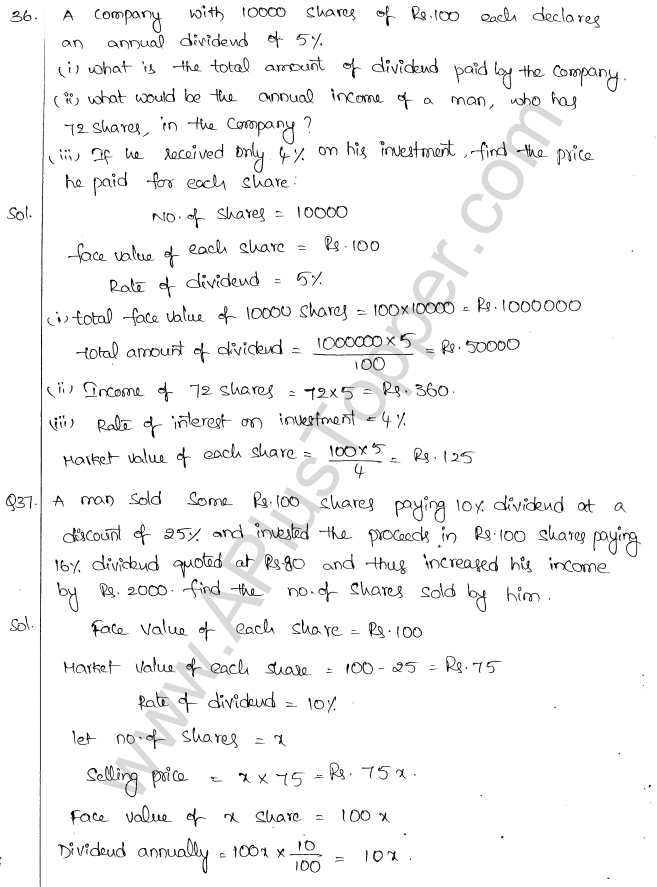 36. A Company with 10000 shares of Rs.100 each declares
an annual dividend of 5%.
(i) what is the total amount of dividend paid by the Company.
(ii) what would be the annual income of a man, who has
72 shares, in the Company?
(iii) If he received only 4% on his investment, find the price
he paid for each share:
Sol. No. of shares = 10000
face value of each share = Rs.100
Rate of dividend = 5%
(i) total face value of 10000 shares = 100×10000 = Rs.1000000
total amount of dividend = 1000000×5/100 = Rs.50000
(ii) Income of 72 shares = 72×5 = Rs.360.
(iii) Rate of interest on investment = 4%
Market value of each share = 100×5/4 = Rs.125
Q37. A man sold some Rs.100 shares paying 10% dividend at a
discount of 25% and invested the proceeds in Rs.100 shares paying
16% dividend quoted at Rs.80 and thus increased his income
by Rs.2000. find the no. of shares sold by him.
Sol. Face value of each share = Rs.100
Market value of each share = 100-25 = Rs.75
Rate of dividend = 10%
let no. of shares = x
Selling price = x × 75 = Rs.75x.
Face value of x share = 100x
Dividend annually = 100x × 10/100 = 10x.
www.APlusTopper.com